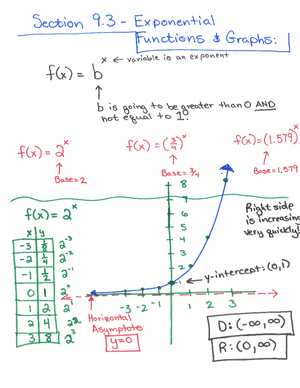 Section 9.3 - Exponential
Functions & Graphs:
f(x) = b^x ← variable is an exponent
b is going to be greater than 0 AND
not equal to 1.
f(x) = 2^x
Base = 2
f(x) = (3/4)^x
Base = 3/4
f(x) = (1.579)^x
Base = 1.579
f(x) = 2^x
x y
-3 1/8 2^-3
-2 1/4 2^-2
-1 1/2 2^-1
0 1 2^0
1 2 2^1
2 4 2^2
3 8 2^3
8
7
6
5
4
3
2
1
-3 -2 -1 1 2 3
Right side
is increasing
very quickly!
y-intercept: (0,1)
Horizontal
Asymptote
y=0
D: (-∞,∞)
R: (0,∞)